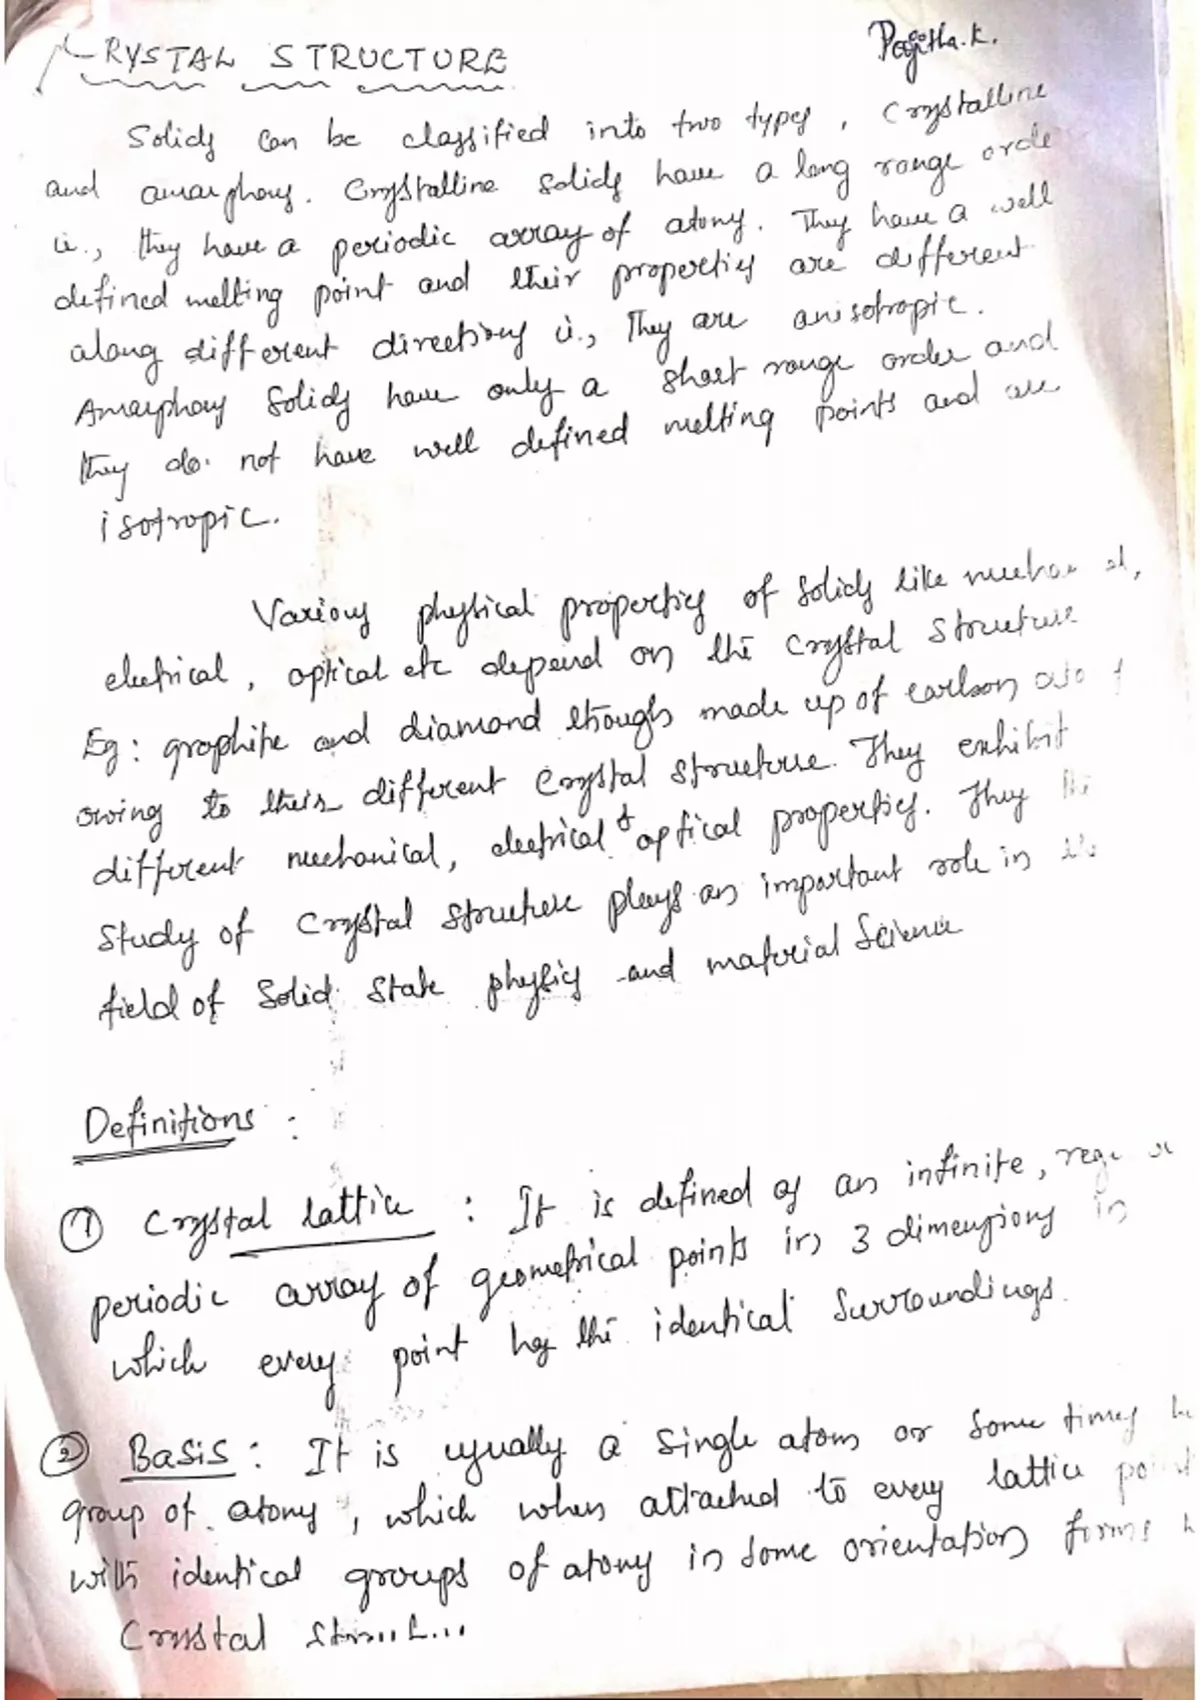 CRYSTAL STRUCTURE
Poojitha.K.
Solids can be classified into two types, Crystalline
and amorphous. Crystalline solids have a long range orde
ie., they have a periodic array of atoms. They have a well
defined melting point and their properties are different
along different directions ie., They are anisotropic.
Amorphous Solids have only a short range order and
they do not have well defined melting points and are
isotropic.
Various physical properties of solids like
electrical, optical etc depend on the crystal structure
Eg: graphite and diamond though made up of carbon
owing to their different crystal structure. They exhibit
different mechanical, electrical & optical properties. They
study of crystal structure plays an important role in
field of Solid State physics and material Science
Definitions :
① Crystal lattice : It is defined as an infinite,
periodic array of geometrical points in 3 dimensions in
which every point has the identical surroundings.
② Basis : It is usually a single atom or some times
group of atoms, which when attached to every lattice point
with identical groups of atoms in some orientation forms
Crystal